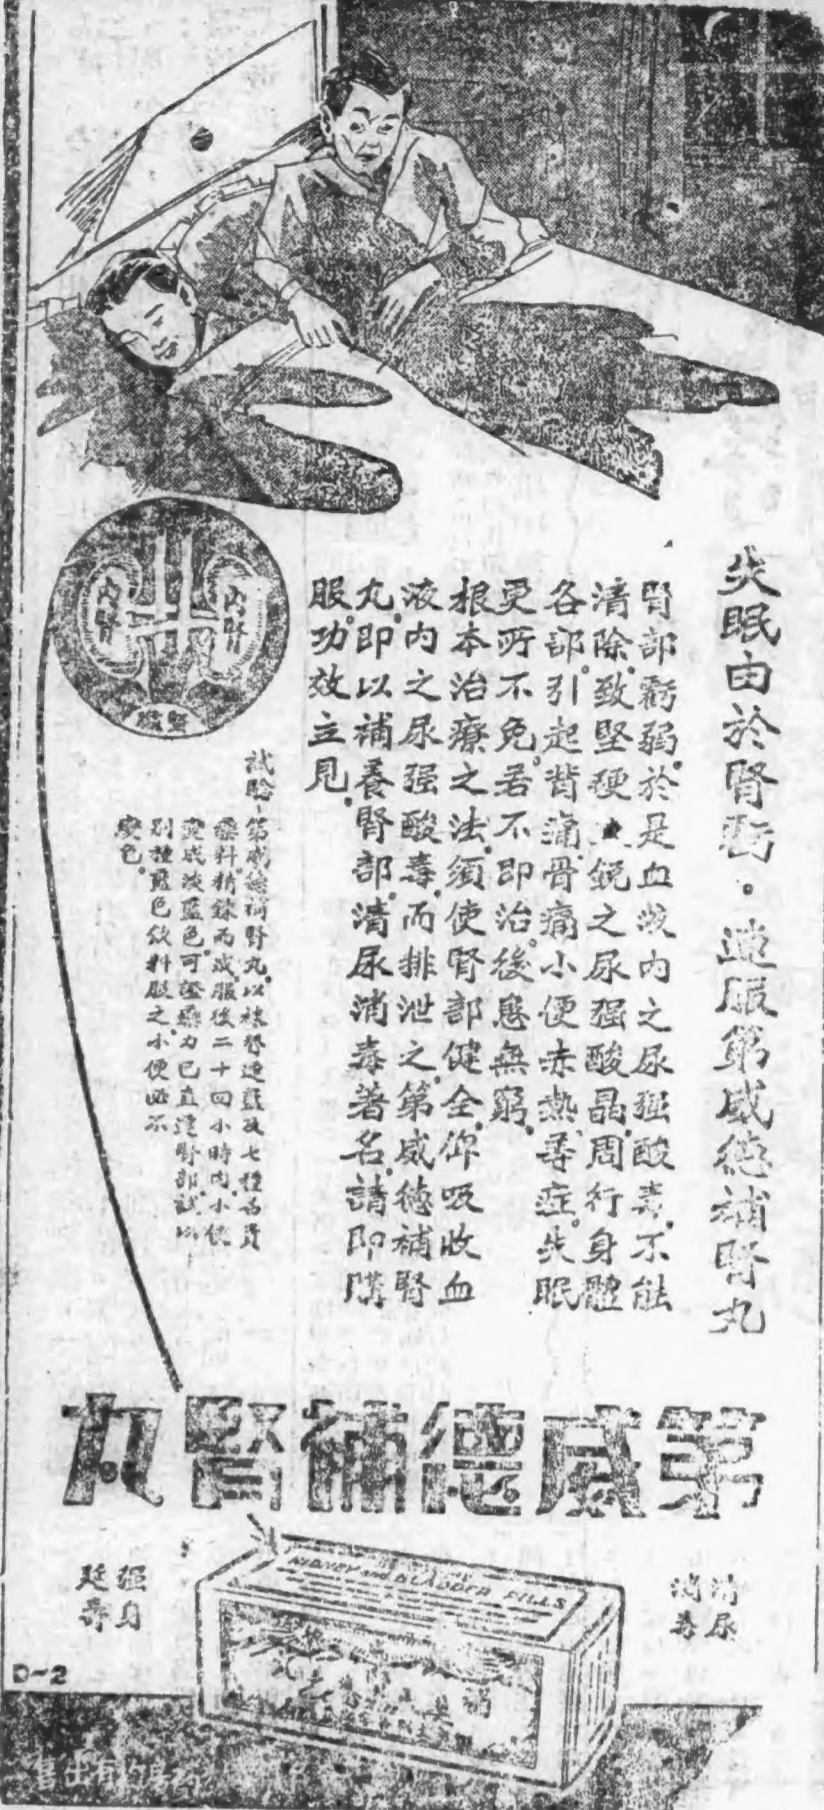 失眠由於腎虧。速服第威德補腎丸
腎部虧弱。於是血液內之尿強酸毒。不能
清除。致堅硬 銳之尿强酸晶。周行身體
各部。引起背痛。骨痛。小便赤熱。等症。失眠
更所不免。若不即治。後患無窮。
根本治療之法。須使腎部健全。俾吸收血
液內之尿强酸毒。而排泄之。第威德補腎
丸。即以補養腎部。清尿消毒著名。請即購
服。功效立見。
內腎
內腎
試驗
第威德補腎丸。以 七種
藥料。精鍊而成。服後二十四小時內。小便
變成淡藍色。可證藥力已直達腎部。試以
別種藍色飲料服之。小便必不
變色。
第威德補腎丸
清尿
消毒
强身
延壽
KIDNEY AND BLADDER PILLS
D-2
房均有出售